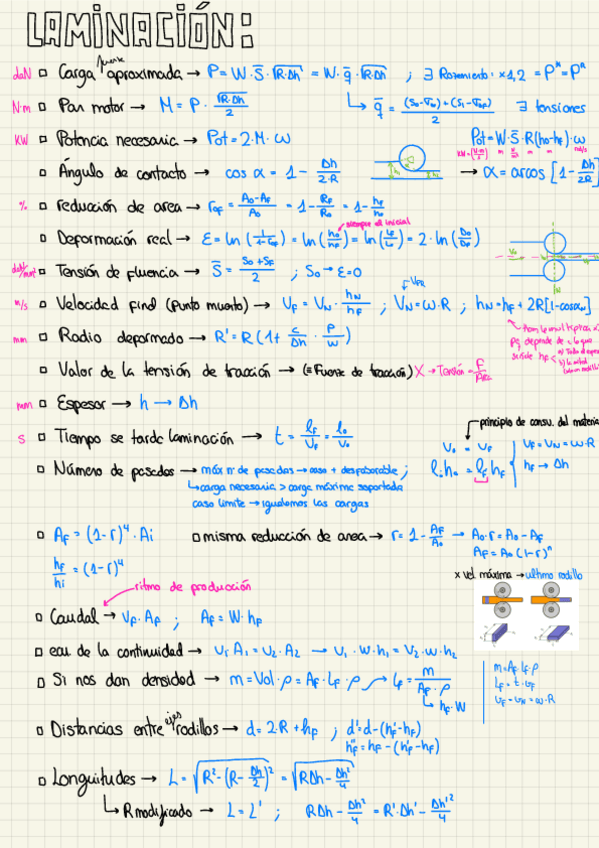 LAMINACIÓN:
daN □ Carga fuerza aproximada → P = W · S̄ · √(R·Δh) = W · q̄ · √(R·Δh) ; ∃ Rozamiento: ×1,2 = Pᴹ = Pᴿ
N·m □ Par motor → M = P · √(R·Δh)/2 ↳ q̄ = ((S₀-σ₀)+(S₁-σ))/2 ∃ tensiones
KW □ Potencia necesaria → Pot = 2·M·ω Pot = W·S̄·R(h₀-hF)·ω
□ Ángulo de contacto → cos α = 1 - Δh/(2·R) → α = arcos [1 - Δh/(2R)]
% □ reducción de area → r = (A₀-AF)/A₀ = 1 - RF/R₀ = 1 - hF/h₀
siempre el inicial
□ Deformación real → ε = ln (1/(1-r)) = ln (h₀/hF) = ln (lF/l₀) = 2·ln (D₀/DF)
daN/mm² □ Tensión de fluencia → S̄ = (S₀+SF)/2 ; S₀ → ε=0
m/s □ Velocidad final (punto muerto) → VF = VN · hN/hF ; VN = ω·R ; hN = hF + 2R[1-cosαN]
mm □ Radio deformado → R' = R (1 + c/Δh · P/W)
□ Valor de la tensión de tracción → (= Fuerza de tracción) X → Tensión = F/
mm □ Espesor → h → Δh
principio de consv. del material
S □ Tiempo se tarda laminación → t = lF/VF = l₀/V₀
V₀ = VF
l₀·h₀ = lF·hF
VF = VN = ω·R
hF → Δh
□ Número de pasadas → máx nº de pasadas → caso + desfavorable ;
↳ carga necesaria > carga máxima soportada
caso límite → igualamos las cargas
□ AF = (1-r)⁴ · Ai □ misma reducción de area → r = 1 - AF/A₀ → A₀·r = A₀ - AF
AF = A₀(1-r)ⁿ
hF/hi = (1-r)⁴
ritmo de producción
x vel máxima → ultimo rodillo
□ Caudal → VF·AF ; AF = W·hF
□ eau de la continuidad → V₁A₁ = V₂·A₂ → V₁·W·h₁ = V₂·W·h₂
□ Si nos dan densidad → m = Vol·ρ = AF·lF·ρ → lF = m/(AF·ρ)
↳ hF·W
m = AF·lF·ρ
lF = t·VF
VF = VN = ω·R
□ Distancias entre ejes rodillos → d = 2·R + hF ; d' = d - (h'F - hF)
h''F = hF - (h'F - hF)
□ Longitudes → L = √(R² - (R - Δh/2)²) = √(RΔh - Δh²/4)
↳ R modificado → L = L' ; RΔh - Δh²/4 = R'·Δh' - Δh'²/4